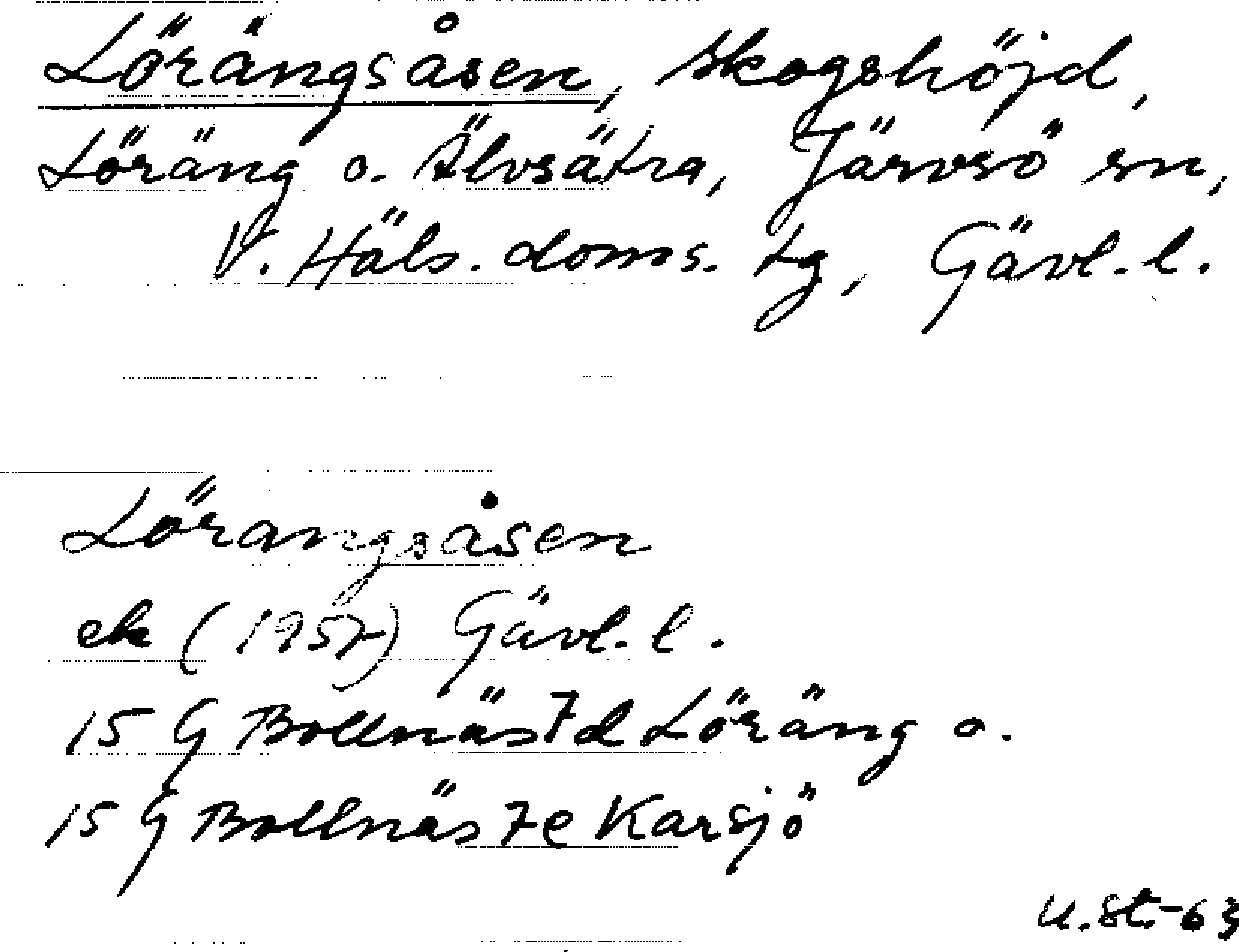 Lörängsåsen, skogshöjd,
Löräng o. Älvsätra, Järvsö sn,
V. Häls. doms. tg, Gävl. l.
Lörangsåsen
ek (1957) Gävl. l.
15 G Bollnäs 7d Löräng o.
15 G Bollnäs 7e Karsjö
U.St-63